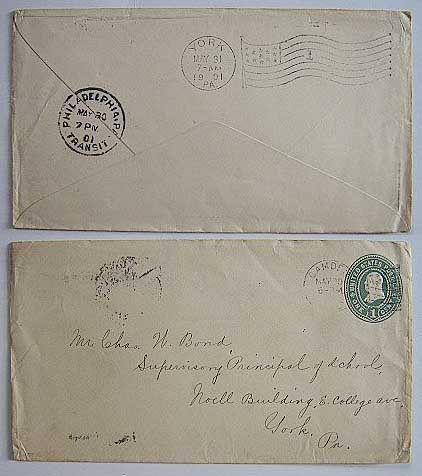 YORK
MAY 31
7-AM
1901
PA.
1
PHILADELPHIA, PA.
MAY 30
7 PM
01
TRANSIT
CAMDE
MAY 30
UNITED STATES
ONE 1 CENT
Mr Chas. W. Bond,
Supervisory Principal of School,
Noell Building, E. College ave,
York,
Pa.